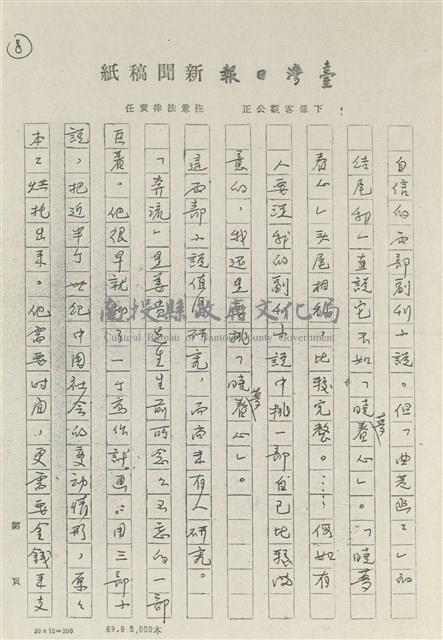 8
臺灣日報新聞稿紙
下筆客觀公正 注意法律責任
自信的兩部副刊小說。但「曲巷幽幽」的
結尾我一直說它不如「曉夢春心」。「曉夢
春心」頭尾相顧,比較完整。……假如有
人要從我的副刊小說中挑一部自己比較滿
意的,我還是會挑「曉夢春心」。
這兩部小說值得研究,而尚未有人研究。
「奔流」是姜貴先生生前所念念不忘的一部
巨著。他很早就擬了一個寫作計畫:用三部小
說,把近半個世紀中國社會的變動情形,原原
本本烘托出來。他需要時間,更需要金錢來支
第 頁
20×10=200
69.9 5,000本
南投縣政府文化局
Cultural Bureau of Nantou County Government